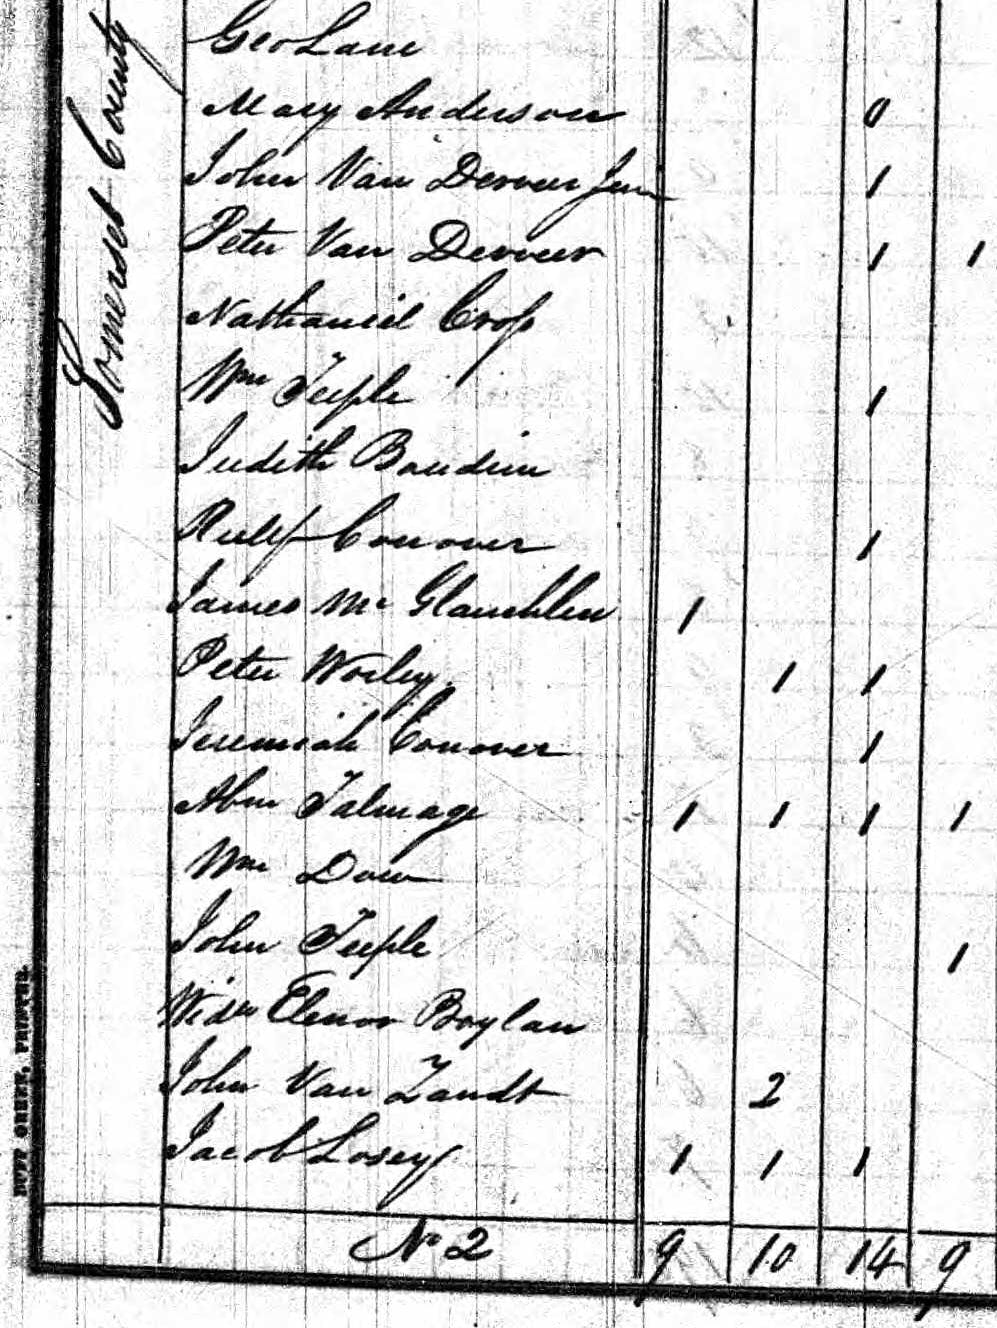 Somerset County
Geo Lane
Mary Anderson 0
John Van Derveer Jun 1
Peter Van Derveer 1 1
Nathaniel Cross
Wm Teeple 1
Judith Boudin
Rulif Conover 1
James Mc Glauchlen 1
Peter Worley 1 1
Jeremiah Conover 1
Abm Talmage 1 1 1 1
Wm Dow
John Teeple 1
Widw Elenor Boylan
John Van Zandt 2
Jacob Losey 1 1 1
No 2 9 10 14 9
DUFF GREEN, PRINTER.